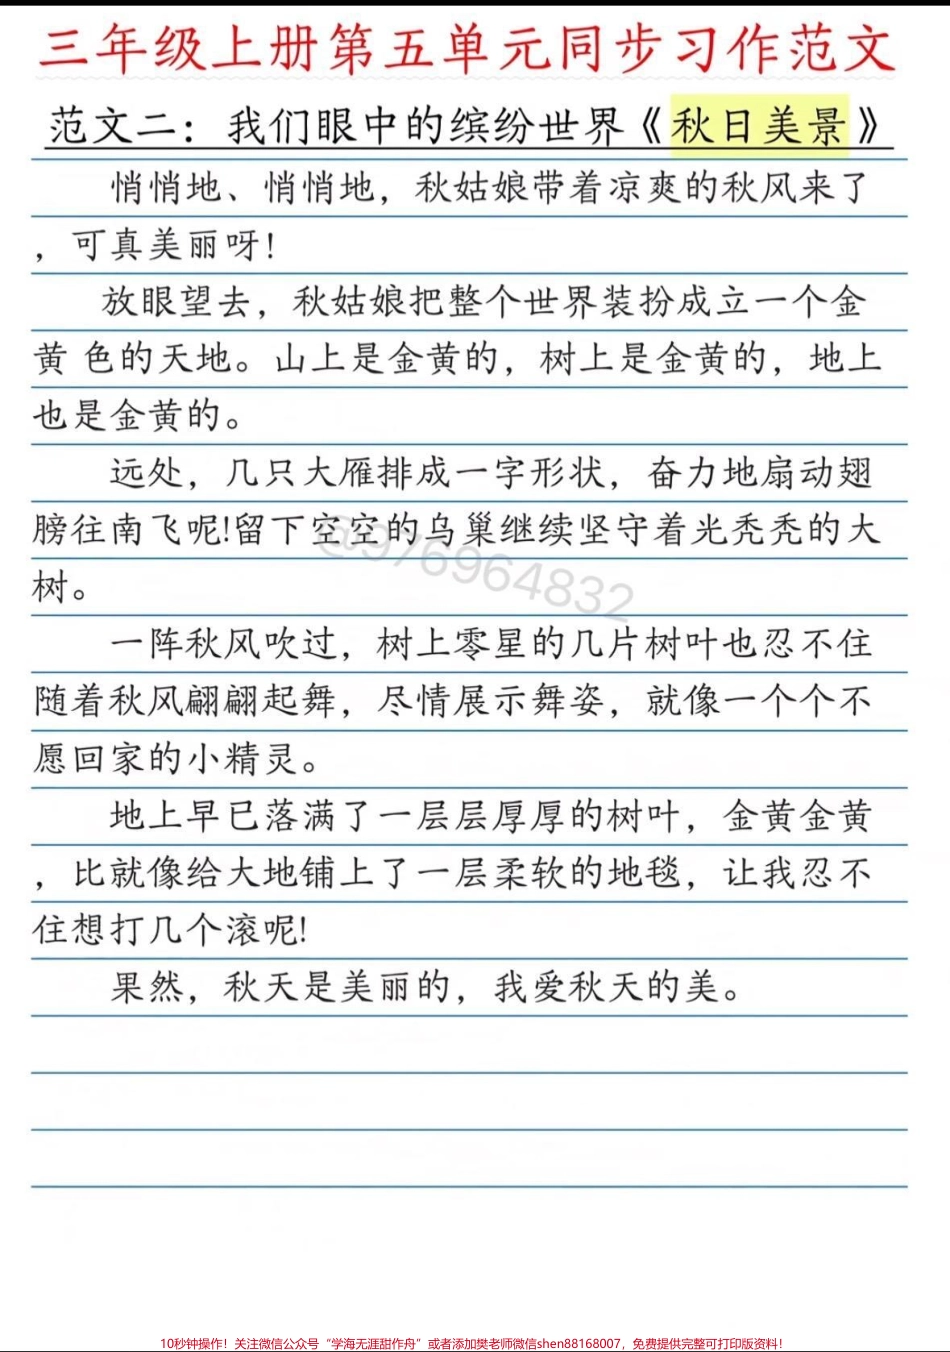 三年级上册第五单元同步习作范文
范文二：我们眼中的缤纷世界《秋日美景》
悄悄地、悄悄地，秋姑娘带着凉爽的秋风来了
，可真美丽呀！
放眼望去，秋姑娘把整个世界装扮成立一个金
黄 色的天地。山上是金黄的，树上是金黄的，地上
也是金黄的。
远处，几只大雁排成一字形状，奋力地扇动翅
膀往南飞呢!留下空空的乌巢继续坚守着光秃秃的大
树。
@976964832
一阵秋风吹过，树上零星的几片树叶也忍不住
随着秋风翩翩起舞，尽情展示舞姿，就像一个个不
愿回家的小精灵。
地上早已落满了一层层厚厚的树叶，金黄金黄
，比就像给大地铺上了一层柔软的地毯，让我忍不
住想打几个滚呢!
果然，秋天是美丽的，我爱秋天的美。
10秒钟操作！关注微信公众号“学海无涯甜作舟”或者添加樊老师微信shen88168007，免费提供完整可打印版资料！